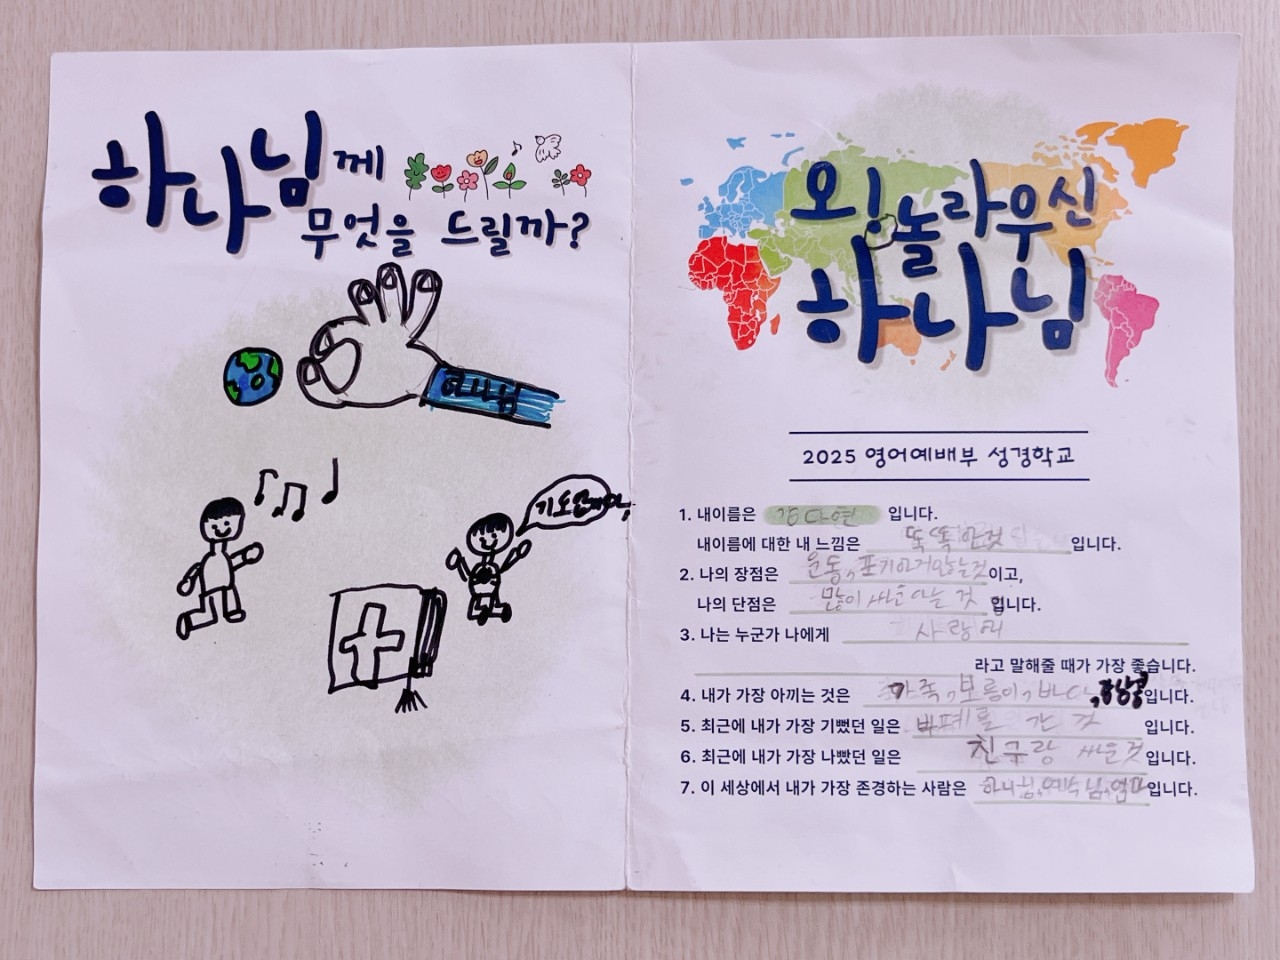 하나님께
무엇을 드릴까?
하나님
기도할게요
오! 놀라우신
하나님
2025 영어예배부 성경학교
1. 내이름은 김다현 입니다.
내이름에 대한 내 느낌은 똑똑한것 입니다.
2. 나의 장점은 운동, 포기하지않는것 이고,
나의 단점은 많이 싸운다는 것 입니다.
3. 나는 누군가 나에게 사랑해
라고 말해줄 때가 가장 좋습니다.
4. 내가 가장 아끼는 것은 가족, 보롱이, 바다, 입니다.
5. 최근에 내가 가장 기뻤던 일은 간 것 입니다.
6. 최근에 내가 가장 나빴던 일은 친구랑 싸운것 입니다.
7. 이 세상에서 내가 가장 존경하는 사람은 하나님, 예수님, 엄마 입니다.